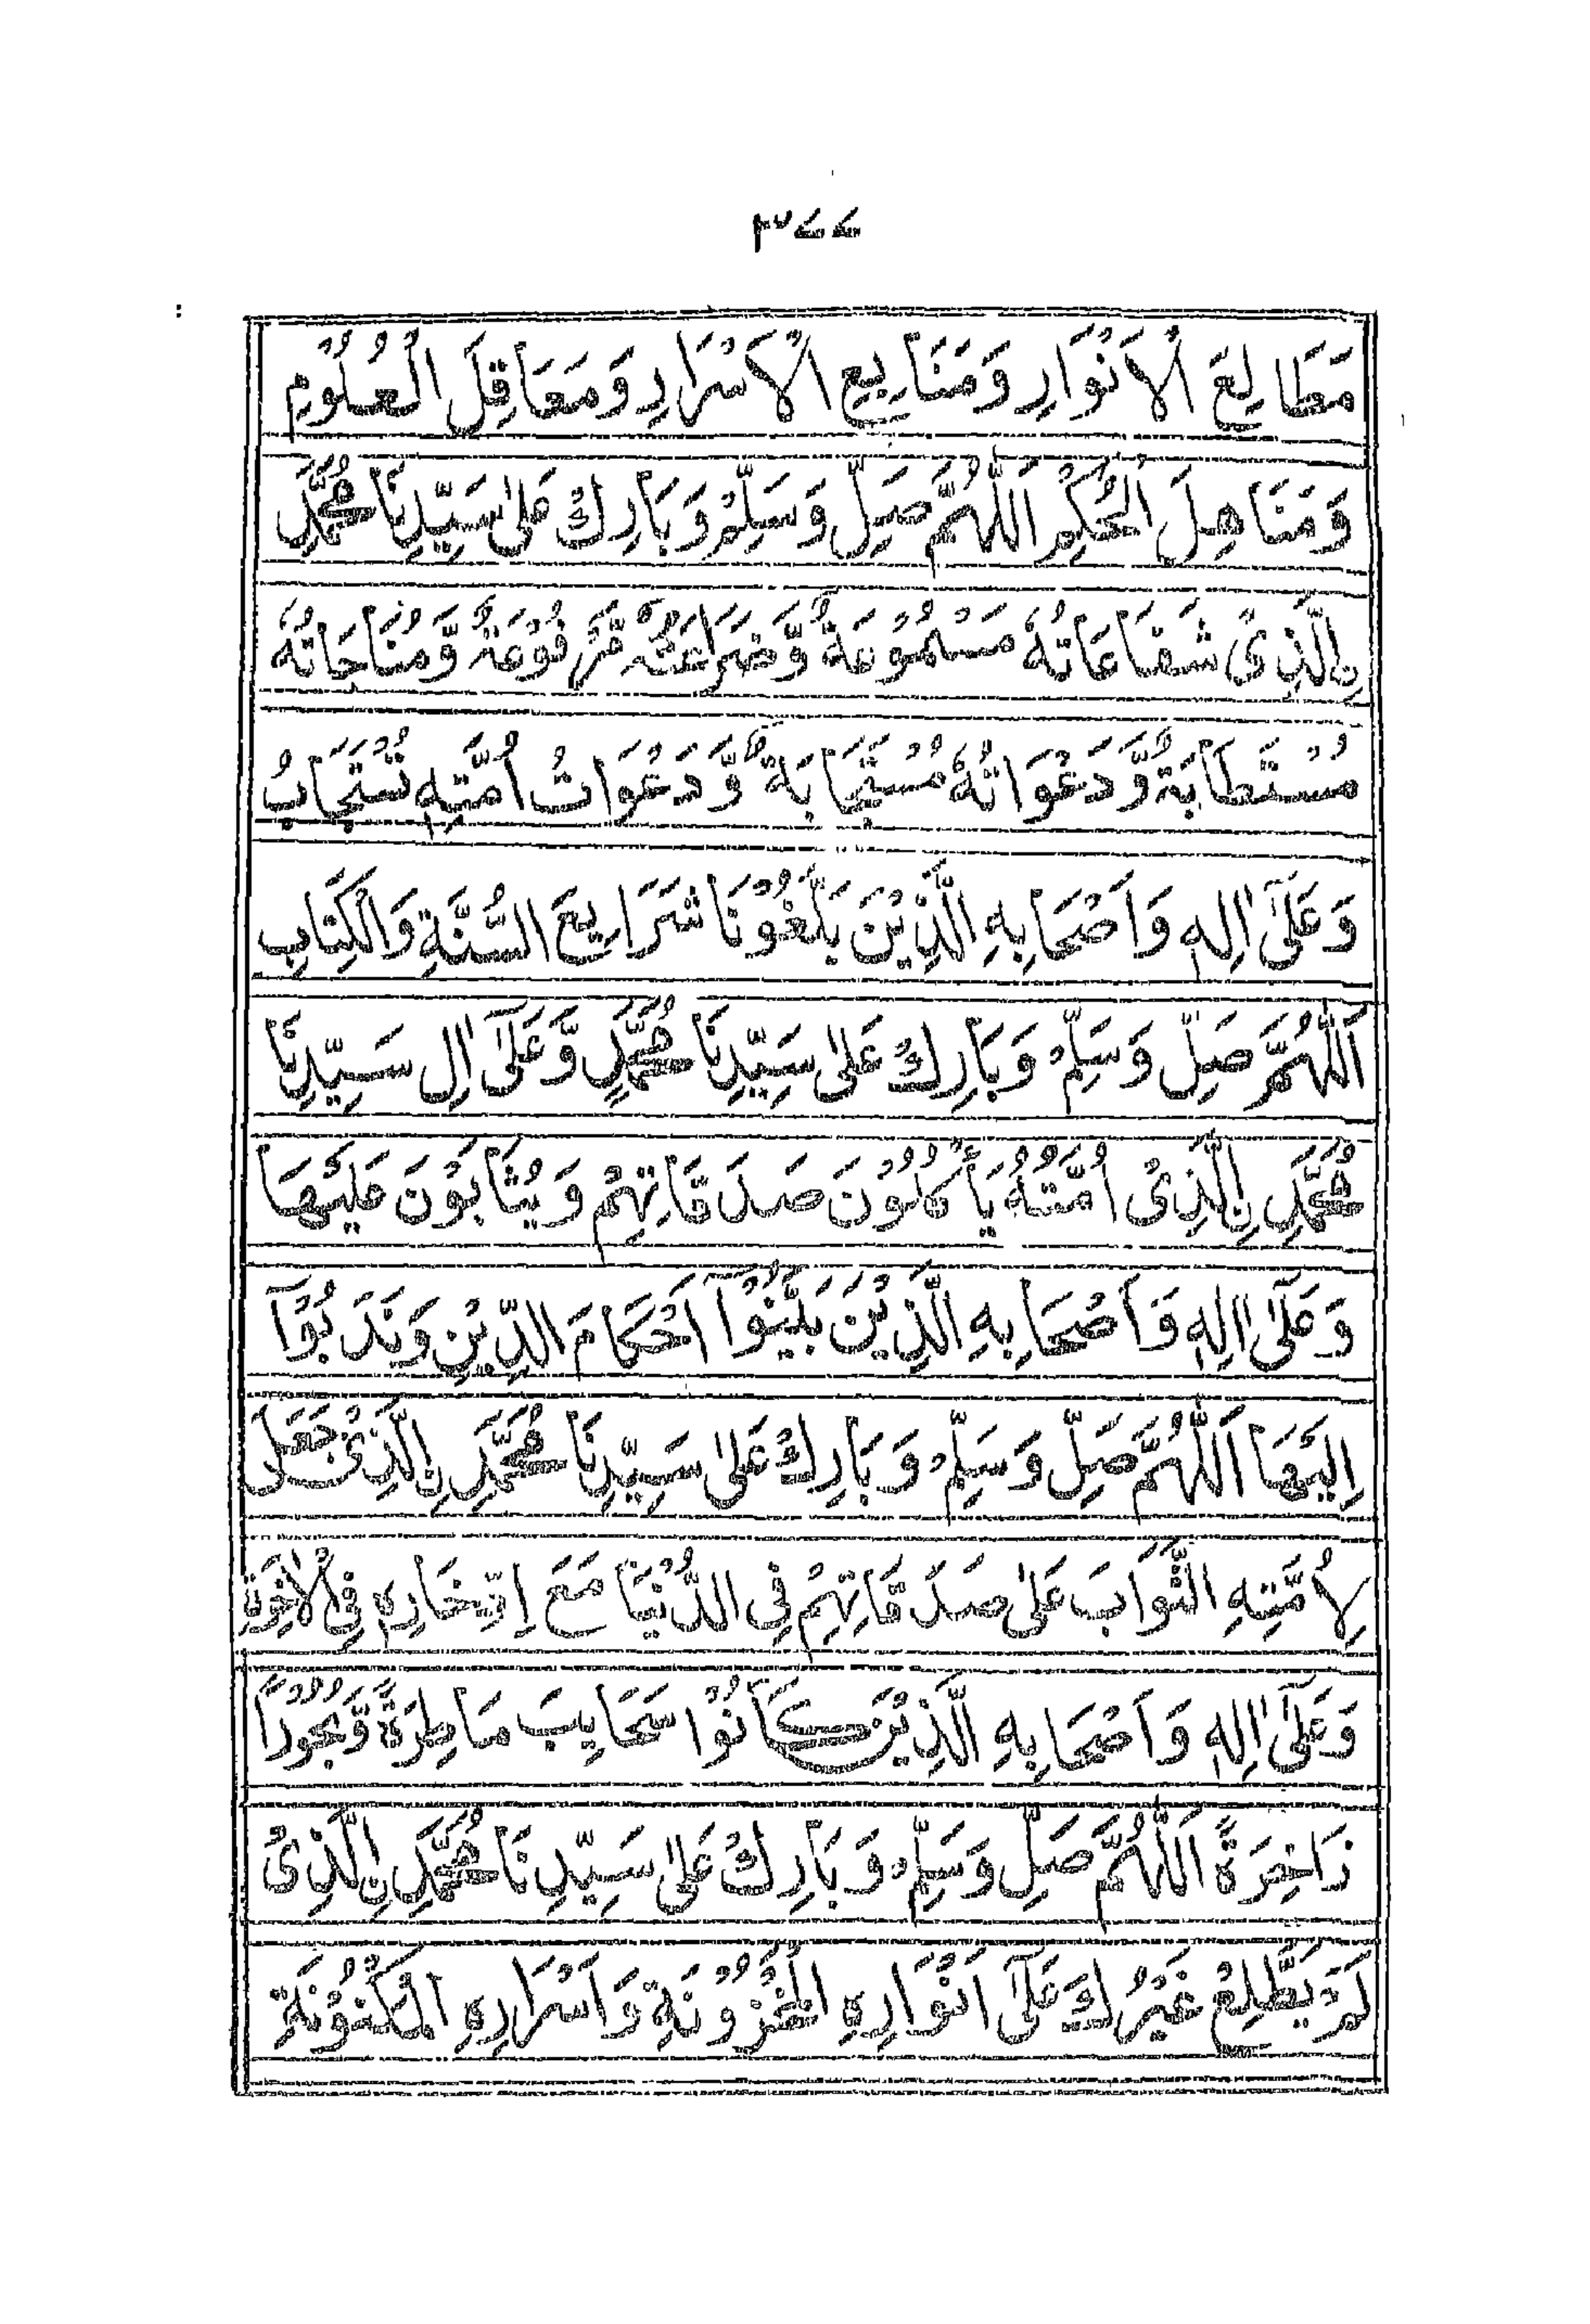 ۳۷۷
مَطَالِعَ الْاَنْوَارِ وَمَنَابِيعِ الْاَسْرَارِ وَمَعَاقِلَ الْعُلُوْمِ
وَمَنَاهِلَ الْحُكِمْ اَللّٰهُمَّ صَلِّ وَسَلِّمْ وَبَارِكْ عَلٰى سَيِّدِنَا مُحَمَّدِ
نِ الَّذِىْ شَفَاعَاتُهٗ مَسْمُوْعَةٌ وَّضَرَاعَتُهٗ مَرْفُوْعَةٌ وَّمُنَاجَاتُهٗ
مُسْتَطَابَةٌ وَّدَعْوَاتُهٗ مُسْتَجَابَةٌ وَّدَعْوَاتُ اُمَّتِهٖ تُسْتَجَابُ
وَعَلٰٓى اٰلِهٖ وَاَصْحَابِهِ الَّذِيْنَ بَلَّغُوْنَا شَرَايِعَ السُّنَّةِ وَالْكِتَابِ
اَللّٰهُمَّ صَلِّ وَسَلِّمْ وَبَارِكْ عَلٰى سَيِّدِنَا مُحَمَّدٍ وَّعَلٰٓى اٰلِ سَيِّدِنَا
مُحَمَّدِ نِ الَّذِىْ اُمَّتُهٗ يَأْكُلُوْنَ صَدَقَاتِهِمْ وَيُثَابُوْنَ عَلَيْهَا
وَعَلٰٓى اٰلِهٖ وَاَصْحَابِهِ الَّذِيْنَ بَيَّنُوْٓا اَحْكَامَ الدِّيْنِ وَنَدَبُوْٓا
اِلَيْهَا اَللّٰهُمَّ صَلِّ وَسَلِّمْ وَبَارِكْ عَلٰى سَيِّدِنَا مُحَمَّدِ نِ الَّذِىْ جَعَلَ
لِاُمَّتِهِ الثَّوَابَ عَلٰى صَدَقَاتِهِمْ فِى الدُّنْيَا مَعَ اِدِّخَارِهٖ فِى الْاٰخِرَةِ
وَعَلٰٓى اٰلِهٖ وَاَصْحَابِهِ الَّذِيْنَ كَانُوْا سَحَايِبَ مَاطِرَةً وَّبُحُوْرًا
زَاخِرَةً اَللّٰهُمَّ صَلِّ وَسَلِّمْ وَبَارِكْ عَلٰى سَيِّدِنَا مُحَمَّدِ نِ الَّذِىْ
لَمْ يَطَّلِعْ غَيْرُكَ عَلٰٓى اَنْوَارِهِ الْمَخْزُوْنَةِ وَاَسْرَارِهِ الْمَكْنُوْنَةِ